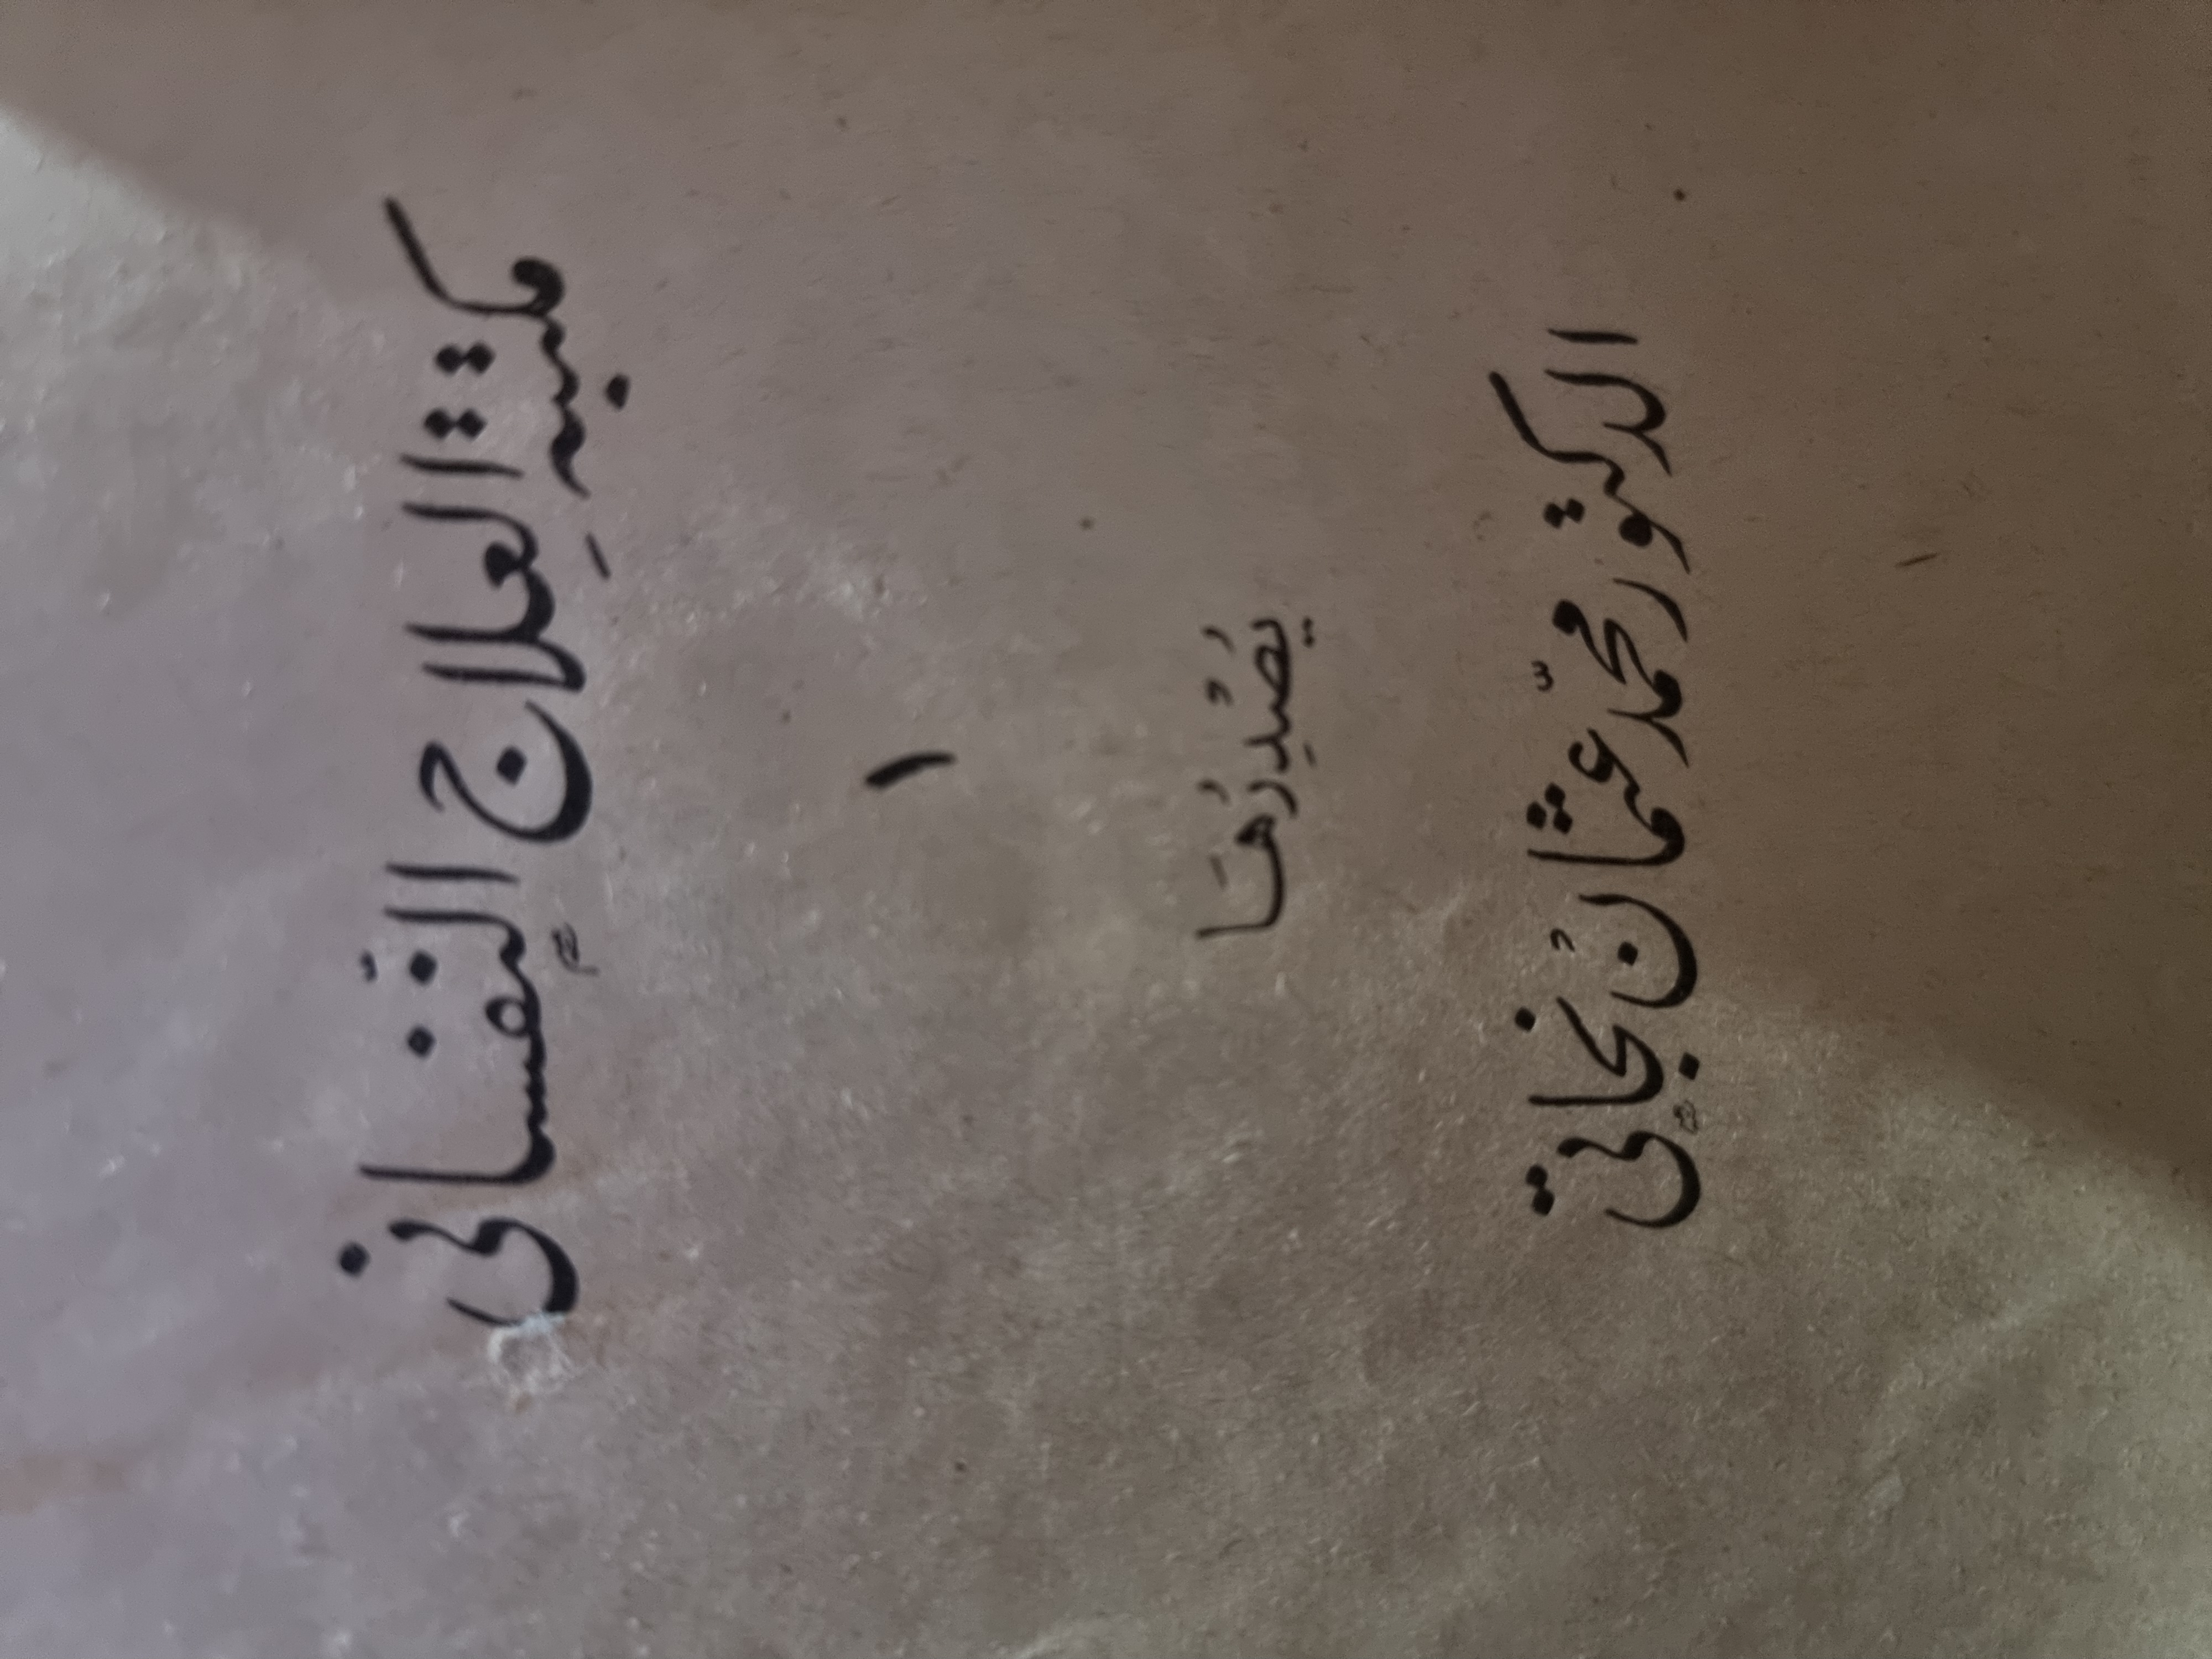 مكتبة العلاج النفساني
١
يُصْدِرُهَا
الدكتور محمّد عثمان نجاتي